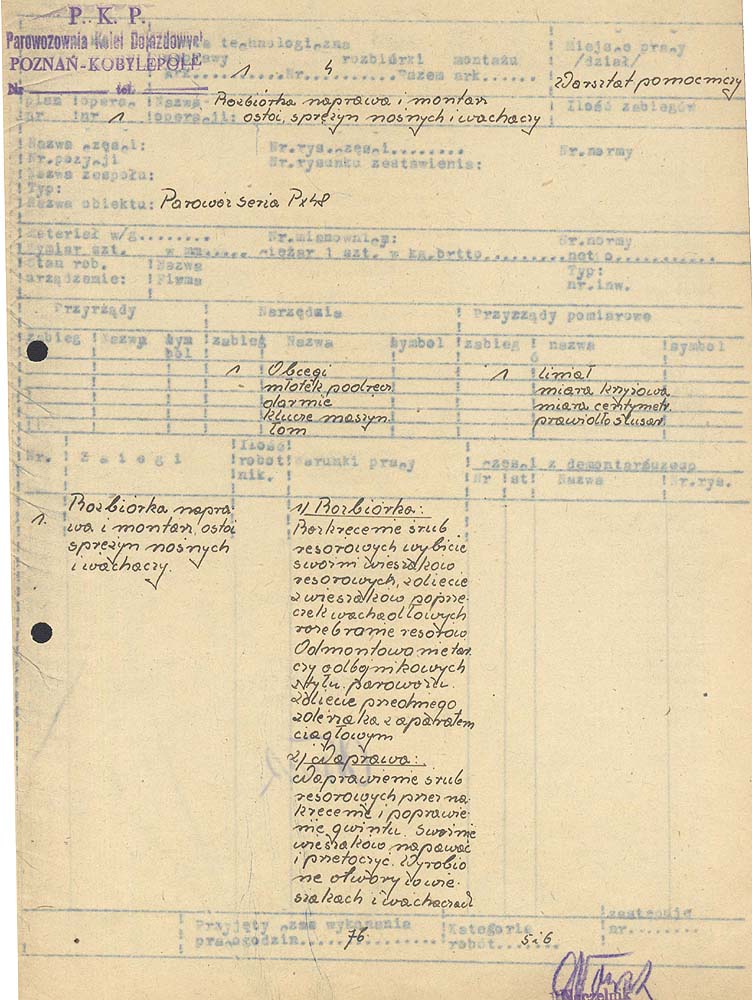 P. K. P.
Parowozownia Kolei Dojazdowej
POZNAŃ-KOBYLEPOLE
Nr tel.
technologiczna
rozbiórki montażu
ark. 1 Nr. 4 Razem ark.
Miejsce pracy
/dział/
Warsztat pomocniczy
plan opera. Nazwa Rozbiórka naprawa i montaż
nr nr 1 operacji: ostoi, sprężyn nośnych i wachaczy
Ilość zabiegów
Nazwa części: Nr.rys.części........ Nr.normy
Nr.pozycji Nr.rysunku zestawienia:
Nazwa zespołu:
Typ:
Nazwa obiektu: Parowóz seria Px48
Materieł w/g........ Nr.mianownic: Nr.normy
Wymiar szt. w mm..... ciężar 1 szt. w kg.brtto
Stan rob. Nazwa Typ:
urządzenie: Firma nr.inw.
Przyrządy Narzędzia Przyrządy pomiarowe
zabieg Nazwa sym zabieg Nazwa symbol zabieg nazwa symbol
bol
1 Obcegi 1 liniał
młotek podręcz. miara krzyżowa
miara centymetr.
klucze maszyn. prawidło ślusar.
łom
Nr. Zabiegi Ilość robot nik. Warunki pracy części z demontarżuzesp
Nr szt Nazwa Nr.rys.
1. Rozbiórka napra
wa i montaż, ostoi
sprężyn nośnych
i wachaczy.
1) Rozbiórka:
Rozkręcenie śrub
resorowych wybicie
sworzni wieszaków
resorowych, zdięcie
z wieszaków poprze
czek wachadłowych
rozebranie resorów
Odmontowanie tar
czy odbojnikowych
z tyłu parowozu.
zdięcie przedniego
zderzaka z aparatem
ciągłowym
2) Naprawa:
Naprawienie śrub
resorowych przez na
kręcenie i poprawie
nie gwintu. Sworznie
wieszaków napawać
i przetoczyć. Wyrobio
ne otwory w wie
szakach i wachaczach
Przyjęty czas wykonania
pracogodzin..... 76. Kategoria
robót...... 5i6 zastępuje
nr........
Naczelnik